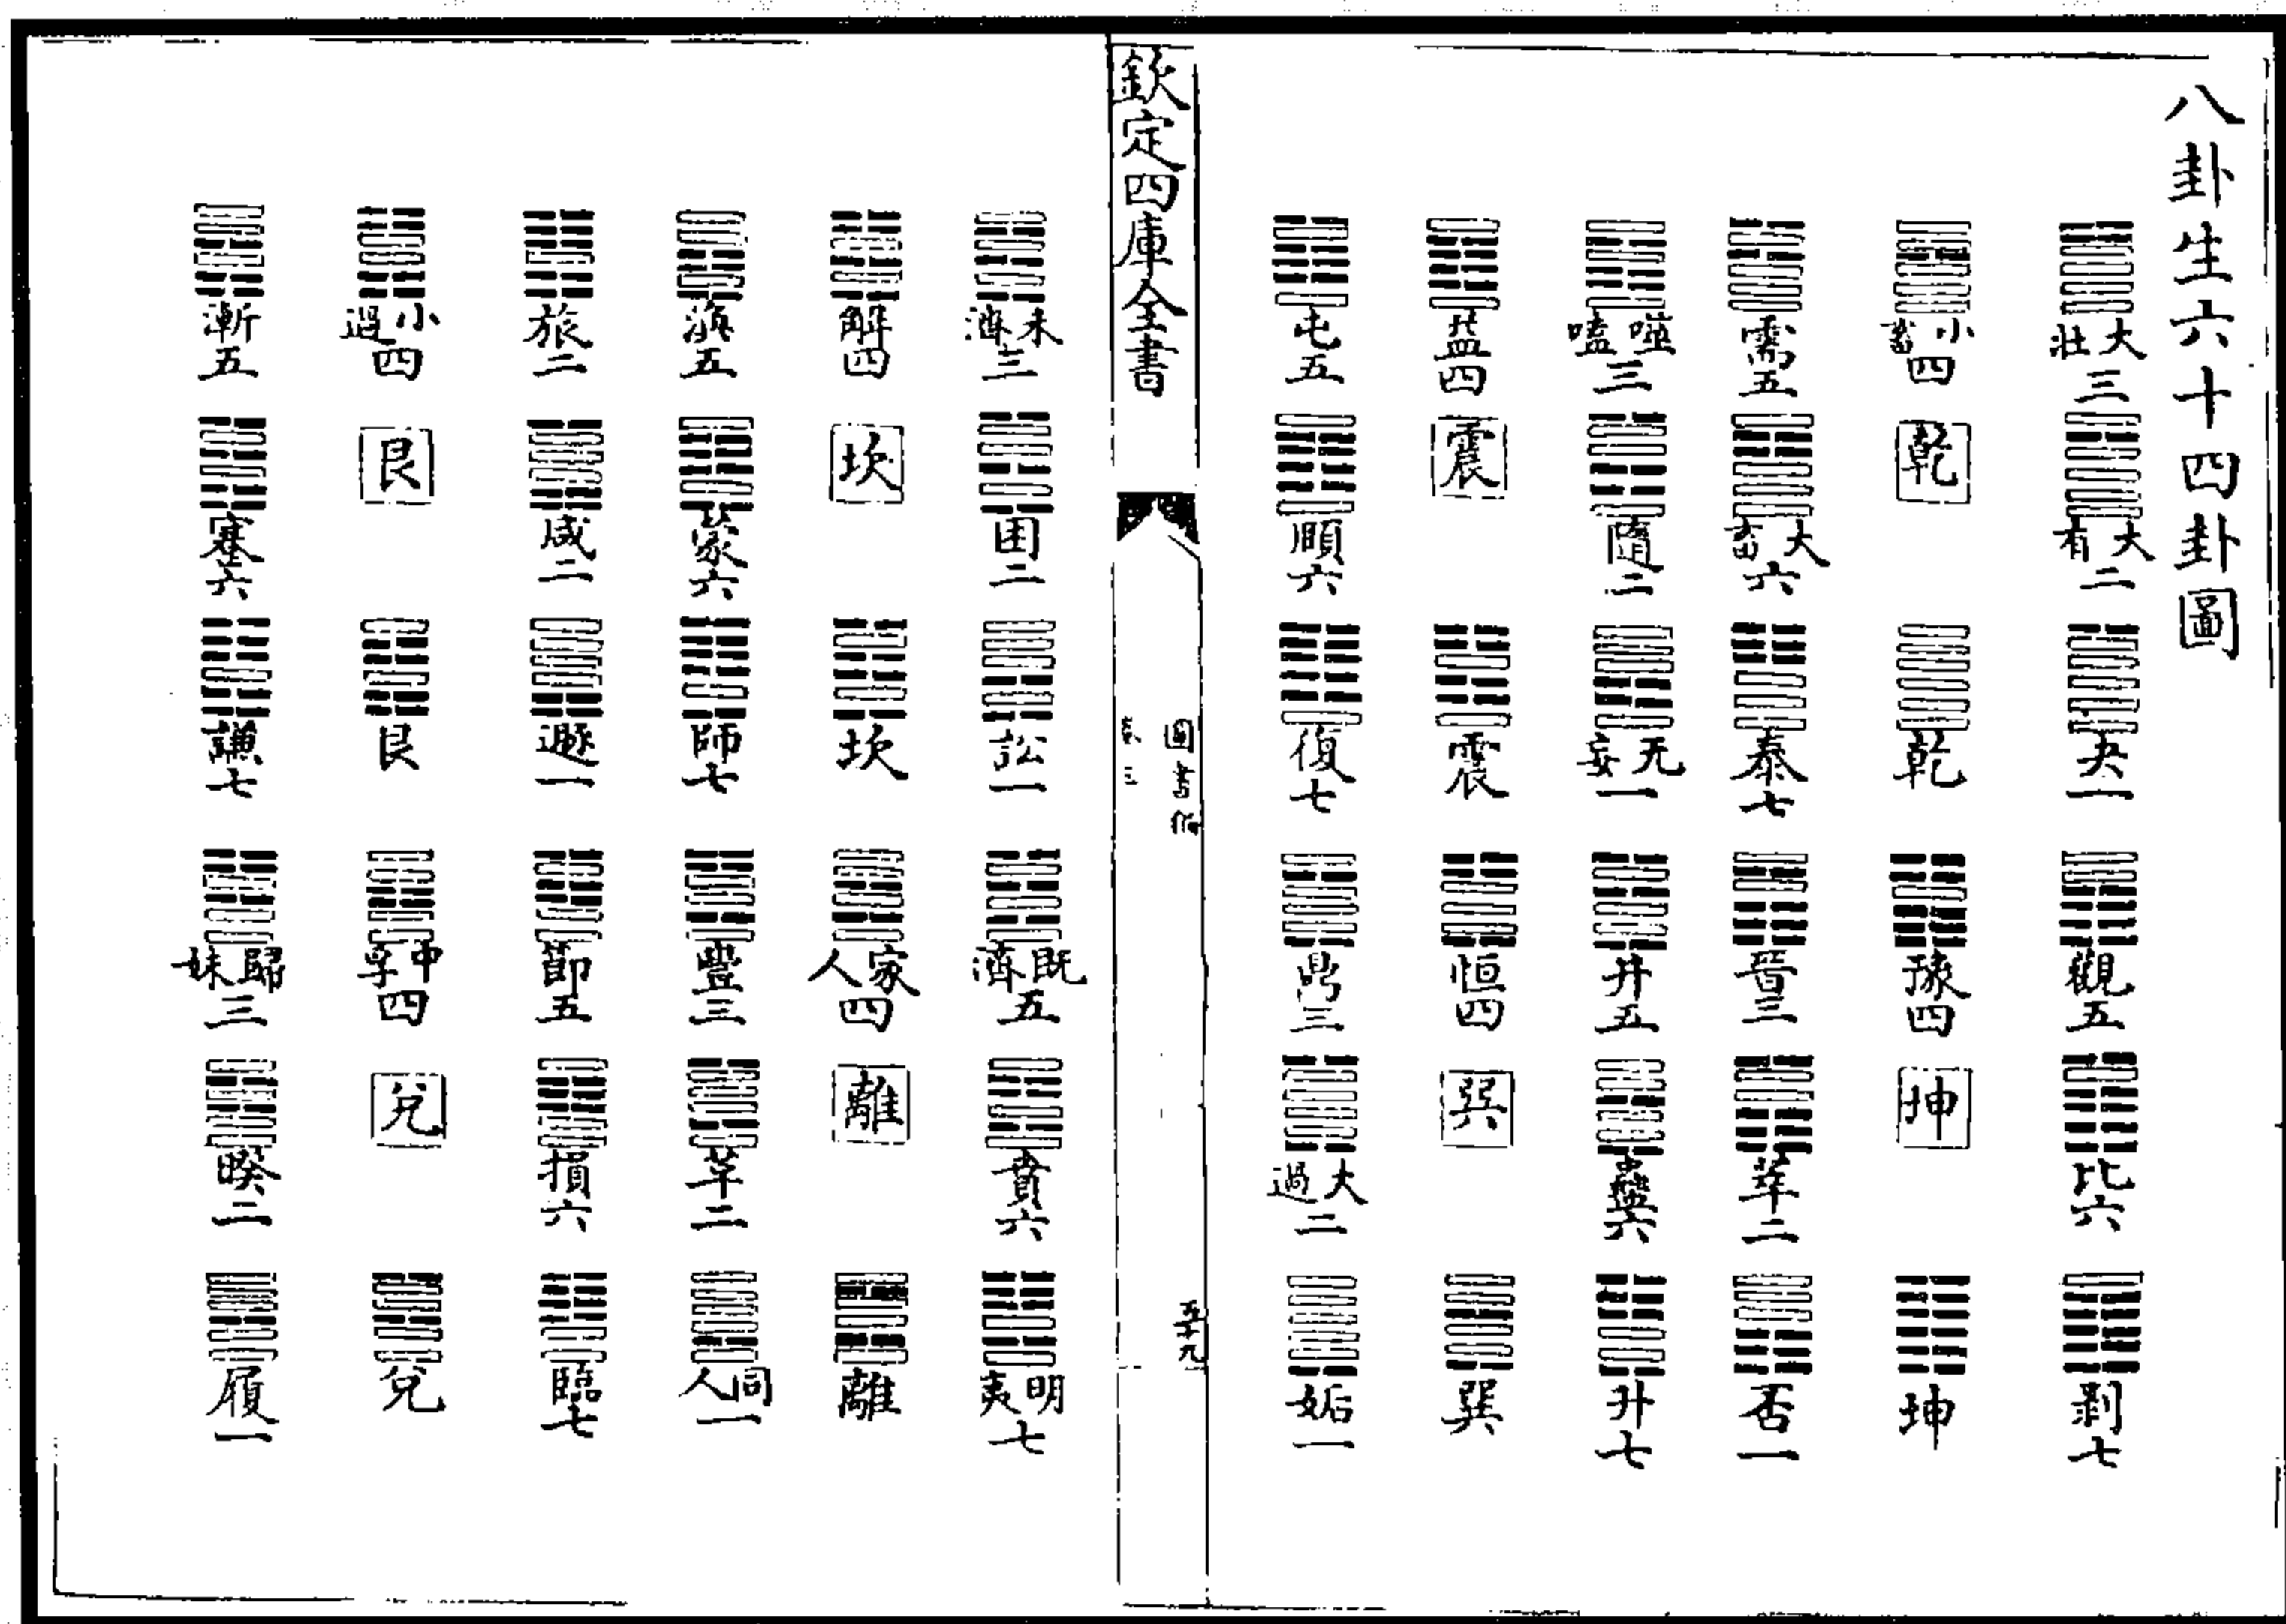 八卦生六十四卦圖
大壯三
大有二
夬一
觀五
比六
剥七
小畜四
乾
乾
豫四
坤
坤
需五
大畜六
泰七
晉三
萃二
否一
噬嗑三
隨二
无妄一
井五
蠱六
升七
益四
震
震
恒四
巽
巽
屯五
頤六
復七
鼎三
大過二
姤一
欽定四庫全書
圖書
卷三
五十九
未濟三
困二
訟一
既濟五
賁六
明夷七
解四
坎
坎
家人四
離
離
渙五
蒙六
師七
豐三
革二
同人一
旅二
咸二
遯一
節五
損六
臨七
小過四
艮
艮
中孚四
兌
兌
漸五
蹇六
謙七
歸妹三
睽二
履一